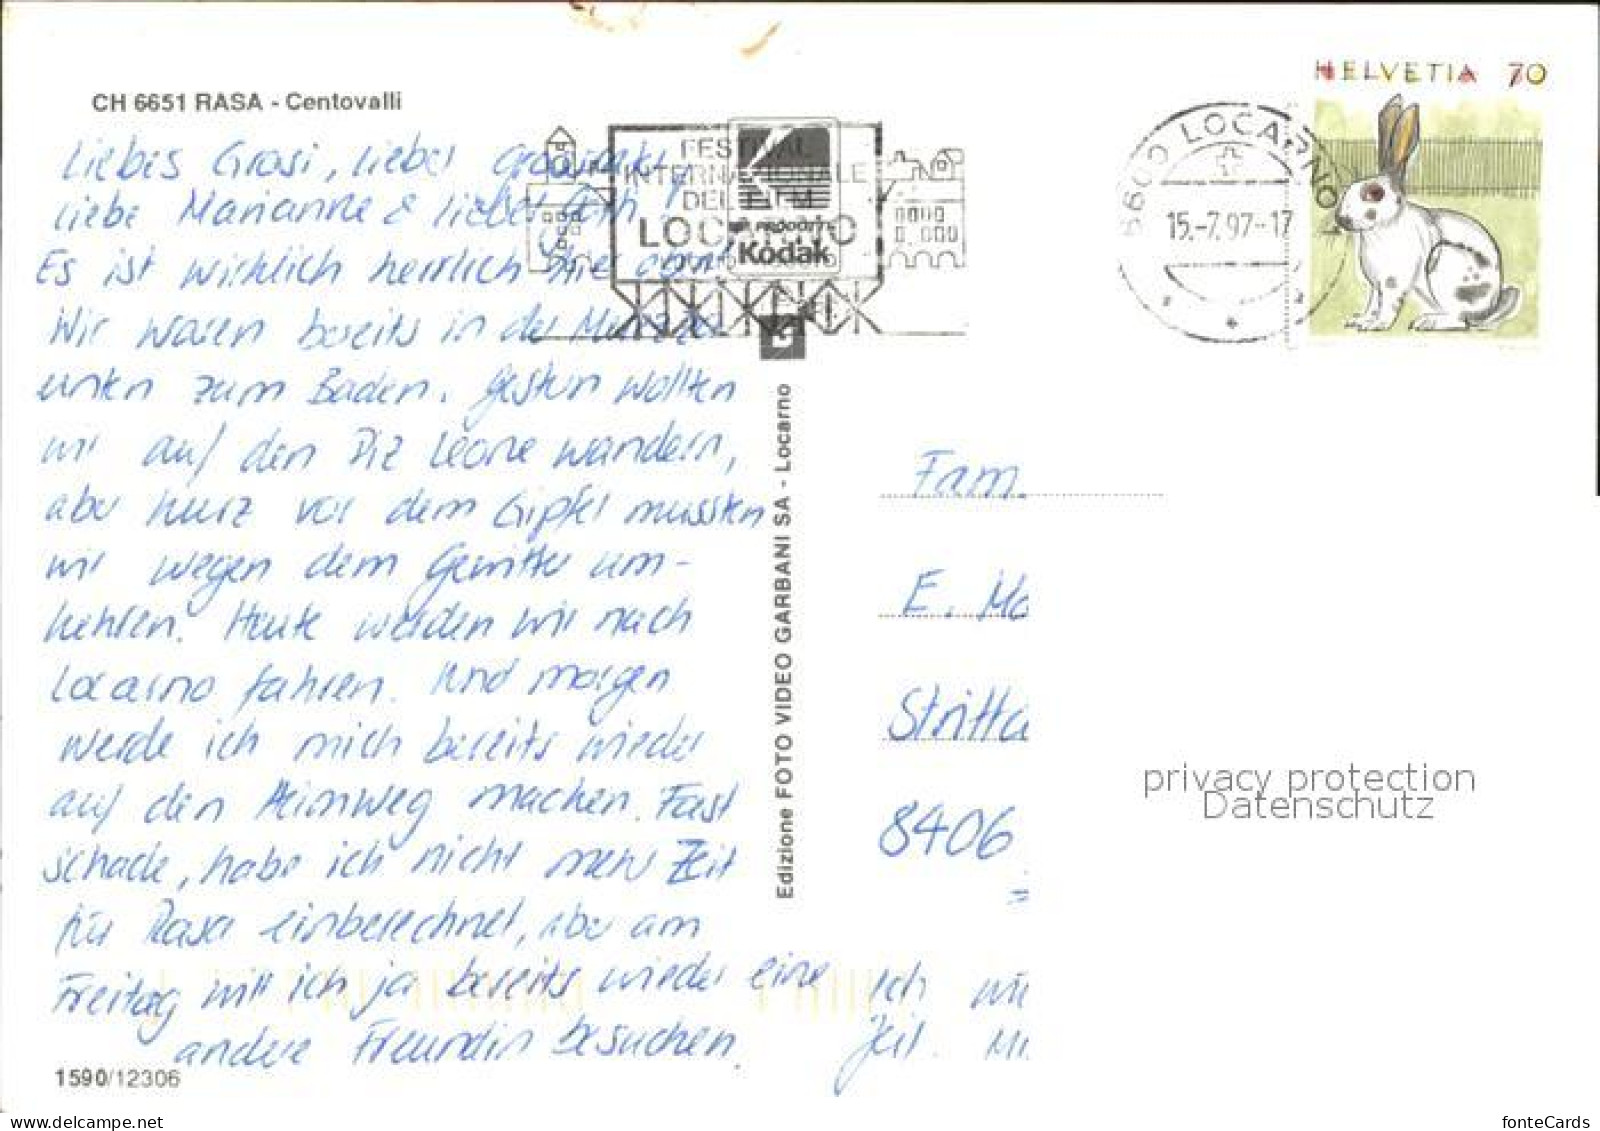 HELVETIA 70
CH 6651 RASA - Centovalli
6600 LOCARNO
15.-7.97-17
FESTIVAL
INTERNAZIONALE
DEL FILM
LOCARNO
Kodak
Liebes Grosi, lieber
liebe Marianne & lieber
Es ist wirklich herrlich hier oben!
Wir waren bereits in der
unten zum Baden. Gestern wollten
wir auf den Piz Leone wandern,
aber kurz vor dem Gipfel mussten
wir wegen dem Gewitter um-
kehren. Heute werden wir nach
Locarno fahren. Und morgen
werde ich mich bereits wieder
auf den Heimweg machen. Fast
schade, habe ich nicht mehr Zeit
für Rasa einberechnet, aber am
Freitag will ich ja bereits wieder eine
andere Freundin besuchen.
1590/12306
Edizione FOTO VIDEO GARBANI SA - Locarno
Fam.
E. Mo
Stritta
8406
Ich
Zeit.
privacy protection
Datenschutz
the-millcorner
fonteCards